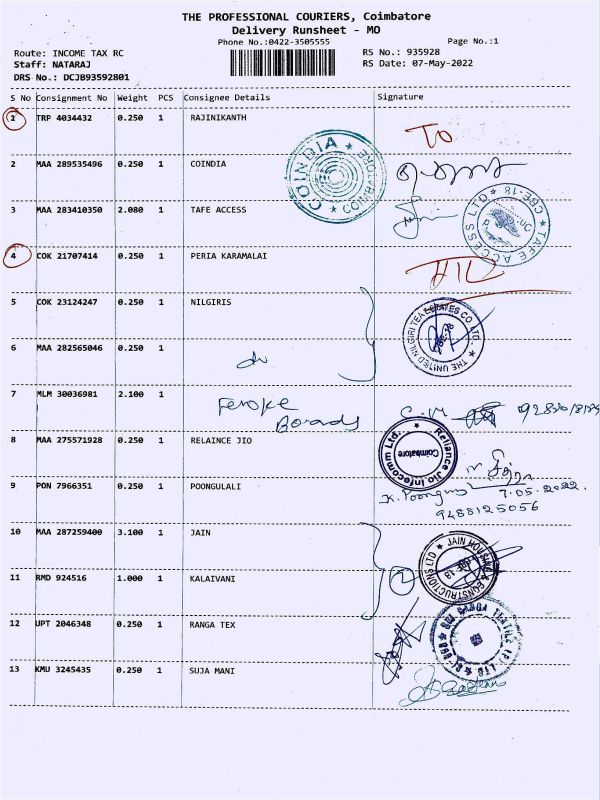 THE PROFESSIONAL COURIERS, Coimbatore
Delivery Runsheet - MO
Phone No.:0422-3505555
Page No.:1
Route: INCOME TAX RC
RS No.: 935928
Staff: NATARAJ
RS Date: 07-May-2022
DRS No.: DCJB93592801
S No Consignment No Weight PCS Consignee Details Signature
1 TRP 4034432 0.250 1 RAJINIKANTH TO
2 MAA 289535496 0.250 1 COINDIA
COINDIA ★ COIMBATORE ★
3 MAA 283410350 2.080 1 TAFE ACCESS
TAFE ACCESS LTD ★ CBE-18 ★
4 COK 21707414 0.250 1 PERIA KARAMALAI
5 COK 23124247 0.250 1 NILGIRIS
★ THE UNITED NILGIRI TEA ESTATES CO. LTD.
6 MAA 282565046 0.250 1
7 MLM 30036981 2.100 1 Feroke
Boards
8 MAA 275571928 0.250 1 RELAINCE JIO
Reliance Jio Infocomm Ltd. ★
Coimbatore
9 PON 7966351 0.250 1 POONGULALI
7.05.2022
9488125056
10 MAA 287259400 3.100 1 JAIN
★ JAIN HOUSING & CONSTRUCTIONS LTD
11 RMD 924516 1.000 1 KALAIVANI 2
12 UPT 2046348 0.250 1 RANGA TEX
13 KMU 3245435 0.250 1 SUJA MANI